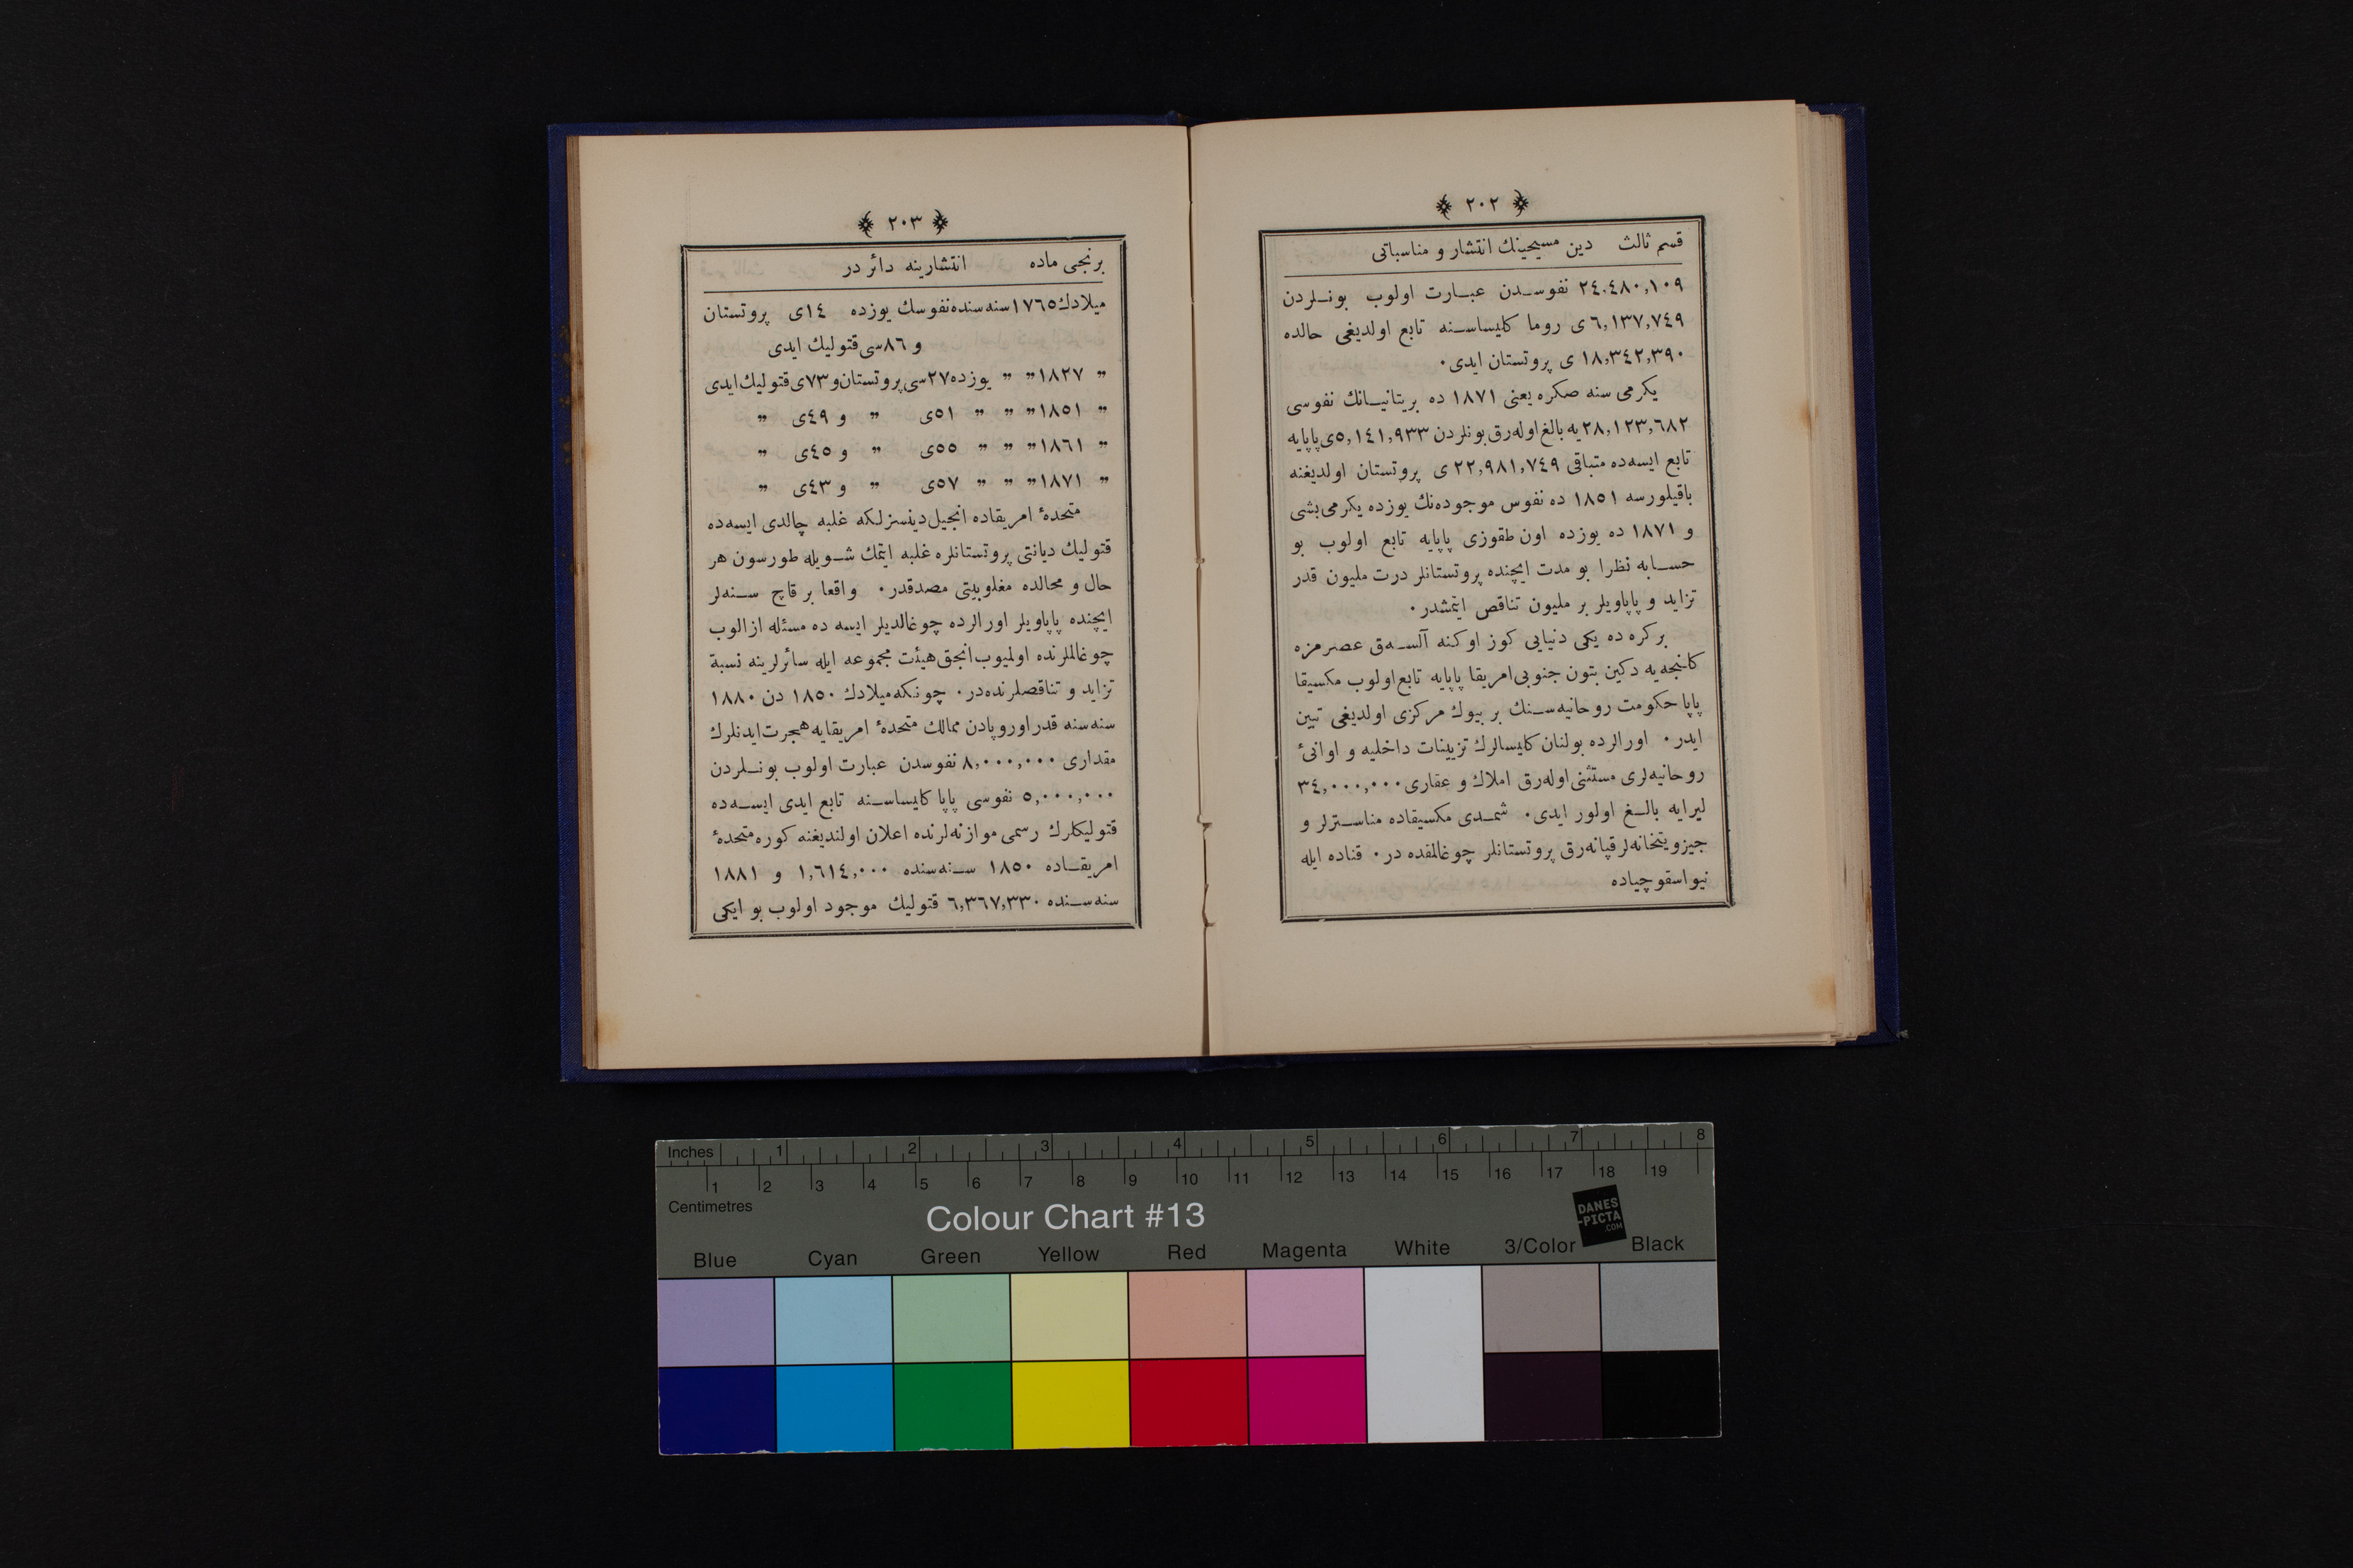 ﴿ ٢٠٢ ﴾
قسم ثالث دين مسيحينك انتشار و مناسباتى
٢٤،٤٨٠,١٠٩ نفوسدن عبارت اولوب بونلردن
٦,١٣٧,٧٤٩ ى روما كليساسنه تابع اولديغى حالده
١٨,٣٤٢,٣٩٠ ى پروتستان ايدى٠
يكرمى سنه صكره يعنى ١٨٧١ ده بريتانيانك نفوسى
٢٨,١٢٣,٦٨٢ يه بالغ اوله‌رق بونلردن ٥,١٤١,٩٣٣ى پاپايه
تابع ايسه‌ده متباقى ٢٢,٩٨١,٧٤٩ ى پروتستان اولديغنه
باقيلورسه ١٨٥١ ده نفوس موجوده‌نك يوزده يكرمى بشى
و ١٨٧١ ده يوزده اون طقوزى پاپايه تابع اولوب بو
حسابه نظرا بو مدت ايچنده پروتستانلر درت مليون قدر
تزايد و پاپاويلر بر مليون تناقص ايتمشدر٠
بركره ده يكى دنيايى كوز اوكنه آلسه‌ق عصرمزه
كلنجه‌يه دكين بتون جنوبى امريقا پاپايه تابع اولوب مكسيقا
پاپا حكومت روحانيه‌سنك بر بيوك مركزى اولديغى تبين
ايدر٠ اورالرده بولنان كليسالرك تزيينات داخليه و اوانىٔ
روحانيه‌لرى مستثنى اوله‌رق املاك و عقارى ٣٤,٠٠٠,٠٠٠
ليرايه بالغ اولور ايدى٠ شمدى مكسيقاده مناسترلر و
جيزويتخانه‌لر قپانه‌رق پروتستانلر چوغالمقده در٠ قناده ايله
نيو اسقوچياده
﴿ ٢٠٣ ﴾
برنجى ماده انتشارينه دائر در
ميلادك ١٧٦٥ سنه سنده نفوسك يوزده ١٤ى پروتستان
و ٨٦سى قتوليك ايدى
„ ١٨٢٧ „ „ يوزده ٢٧سى پروتستان و ٧٣ى قتوليك ايدى
„ ١٨٥١ „ „ „ ٥١ى „ و ٤٩ى „
„ ١٨٦١ „ „ „ ٥٥ى „ و ٤٥ى „
„ ١٨٧١ „ „ „ ٥٧ى „ و ٤٣ى „
متحدهٔ امريقاده انجيل دينسزلكه غلبه چالدى ايسه‌ده
قتوليك ديانتى پروتستانلره غلبه ايتمك شويله طورسون هر
حال و محالده مغلوبيتى مصدقدر٠ واقعا بر قاچ سنه‌لر
ايچنده پاپاويلر اورالرده چوغالديلر ايسه ده مسئله ازالوب
چوغالملرنده اولميوب انجق هيئت مجموعه ايله سائرلرينه نسبة
تزايد و تناقصلرنده‌در٠ چونكه ميلادك ١٨٥٠ دن ١٨٨٠
سنه سنه قدر اوروپادن ممالك متحدهٔ امريقايه هجرت ايدنلرك
مقدارى ٨,٠٠٠,٠٠٠ نفوسدن عبارت اولوب بونلردن
٥,٠٠٠,٠٠٠ نفوسى پاپا كليساسنه تابع ايدى ايسه‌ده
قتوليكلرك رسمى موازنه‌لرنده اعلان اولنديغنه كوره متحدهٔ
امريقاده ١٨٥٠ سنه‌سنده ١,٦١٤,٠٠٠ و ١٨٨١
سنه‌سنده ٦,٣٦٧,٣٣٠ قتوليك موجود اولوب بو ايكى
Inches 1 2 3 4 5 6 7 8
1 2 3 4 5 6 7 8 9 10 11 12 13 14 15 16 17 18 19
Centimetres
Colour Chart #13
DANES
-PICTA
.COM
Blue Cyan Green Yellow Red Magenta White 3/Color Black